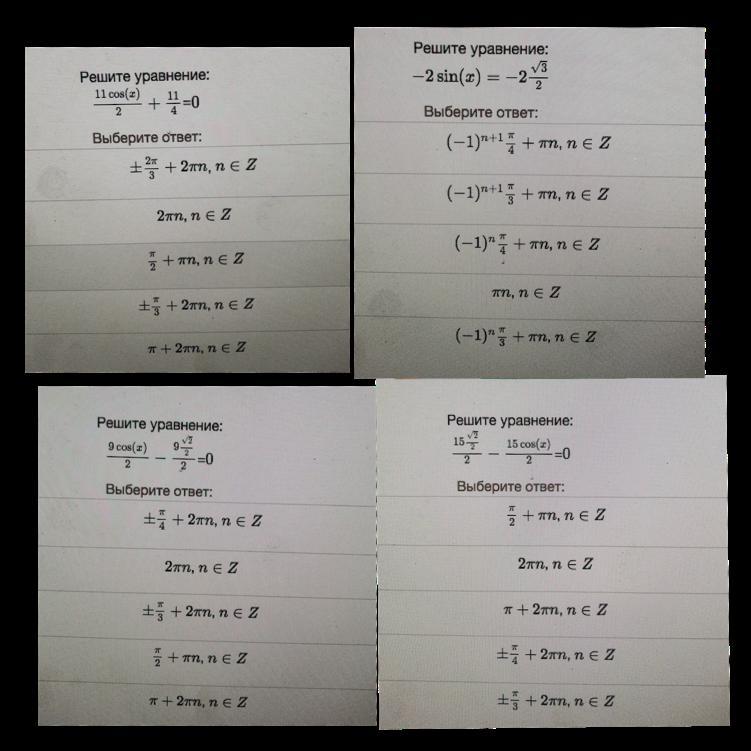 Решите уравнение:
11 cos(x)/2 + 11/4 =0
Выберите ответ:
± 2π/3 + 2πn, n ∈ Z
2πn, n ∈ Z
π/2 + πn, n ∈ Z
± π/3 + 2πn, n ∈ Z
π + 2πn, n ∈ Z
Решите уравнение:
−2 sin(x) = −2 √3/2
Выберите ответ:
(−1)^{n+1} π/4 + πn, n ∈ Z
(−1)^{n+1} π/3 + πn, n ∈ Z
(−1)^n π/4 + πn, n ∈ Z
πn, n ∈ Z
(−1)^n π/3 + πn, n ∈ Z
Решите уравнение:
9 cos(x)/2 − 9 √2/2/2 =0
Выберите ответ:
± π/4 + 2πn, n ∈ Z
2πn, n ∈ Z
± π/3 + 2πn, n ∈ Z
π/2 + πn, n ∈ Z
π + 2πn, n ∈ Z
Решите уравнение:
15 √2/2/2 − 15 cos(x)/2 =0
Выберите ответ:
π/2 + πn, n ∈ Z
2πn, n ∈ Z
π + 2πn, n ∈ Z
± π/4 + 2πn, n ∈ Z
± π/3 + 2πn, n ∈ Z